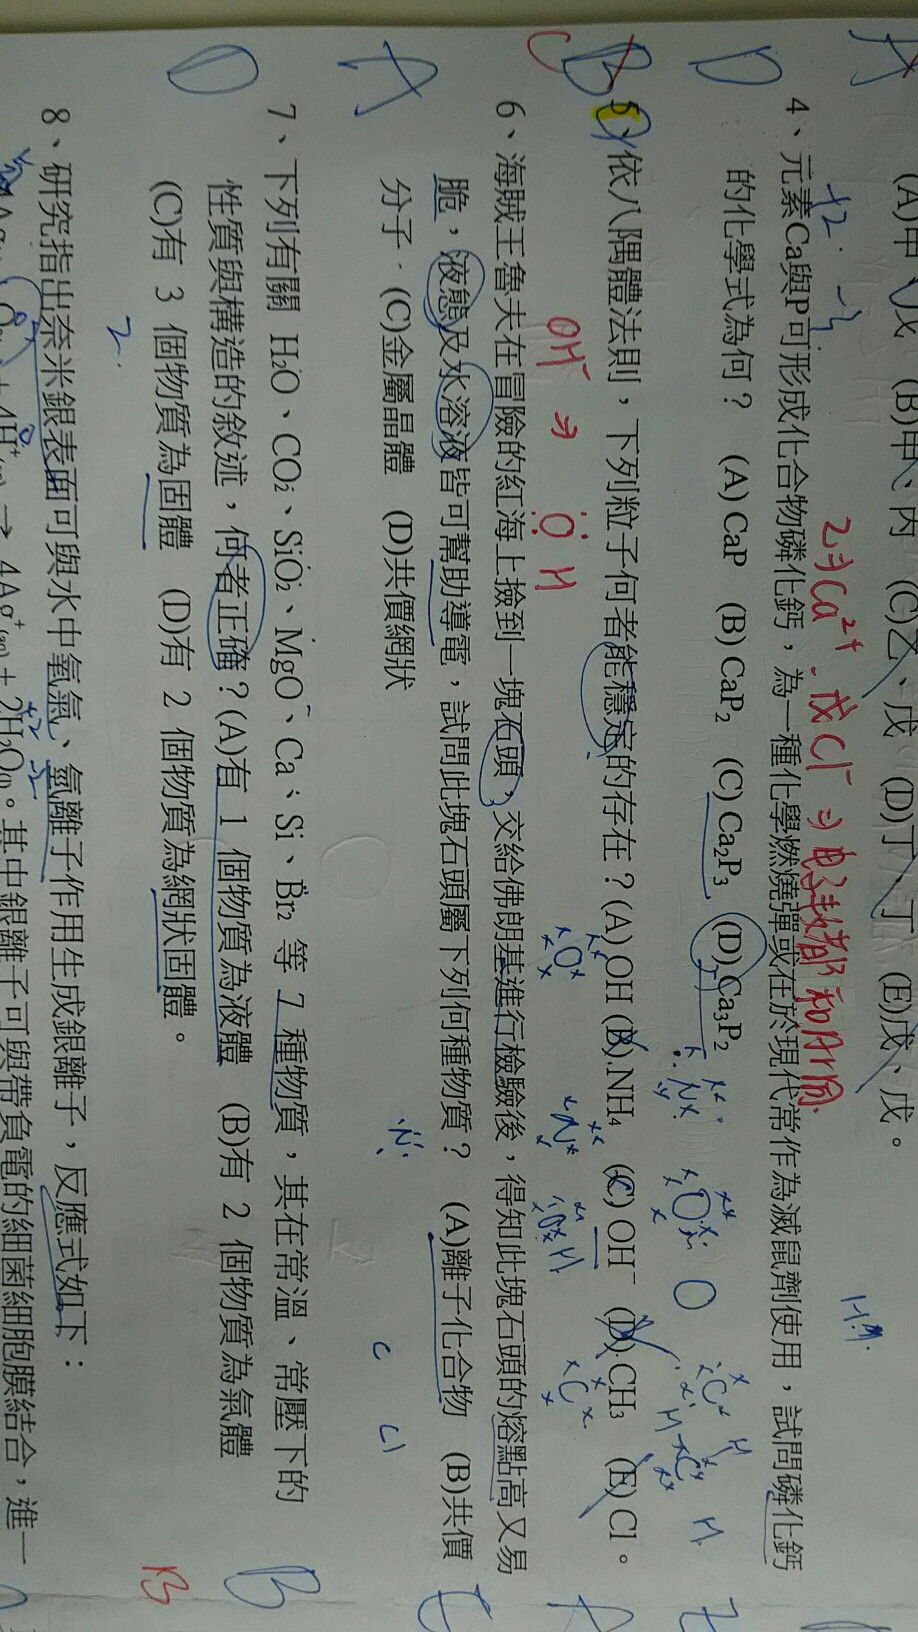 (A)甲、戊 (B)甲、丙 (C)乙、戊 (D)丁、丁 (E)戊、戊。
+2 -3
2⇒Ca²⁺、或Cl⁻⇒電子數都和Ar同
4、元素Ca與P可形成化合物磷化鈣，為一種化學燃燒彈或在於現代常作為滅鼠劑使用，試問磷化鈣
D 的化學式為何？ (A) CaP (B) CaP₂ (C) Ca₂P₃ (D) Ca₃P₂
C B 5、依八隅體法則，下列粒子何者能穩定的存在？(A) OH (B) NH₄ (C) OH⁻ (D) CH₃ (E) Cl。
OH⁻ ⇒ O H
6、海賊王魯夫在冒險的紅海上撿到一塊石頭，交給佛朗基進行檢驗後，得知此塊石頭的熔點高又易
脆，液態及水溶液皆可幫助導電，試問此塊石頭屬下列何種物質？ (A)離子化合物 (B)共價
A 分子 (C)金屬晶體 (D)共價網狀
7、下列有關 H₂O、CO₂、SiO₂、MgO、Ca、Si、Br₂ 等 7 種物質，其在常溫、常壓下的
D 性質與構造的敘述，何者正確？(A)有 1 個物質為液體 (B)有 2 個物質為氣體
(C)有 3 個物質為固體 (D)有 2 個物質為網狀固體。
2
B
8、研究指出奈米銀表面可與水中氧氣、氫離子作用生成銀離子，反應式如下：
4H⁺(aq) → 4Ag⁺(aq) + 2H₂O(l)。其中銀離子可與帶負電的細菌細胞膜結合，進一